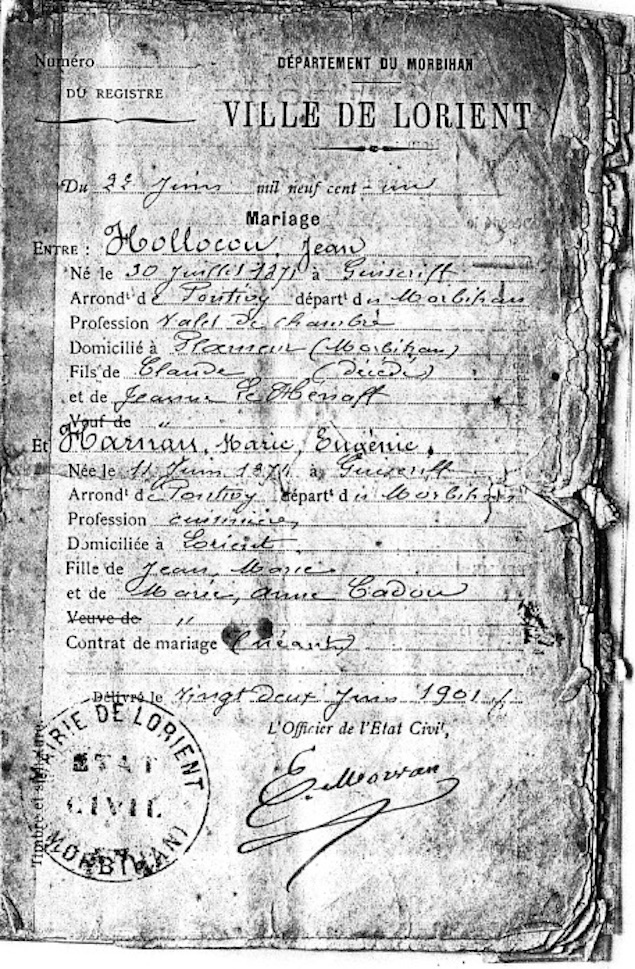 Numéro
DU REGISTRE
DÉPARTEMENT DU MORBIHAN
VILLE DE LORIENT
Du 22 Juin mil neuf cent un
Mariage
ENTRE : Hollocou, Jean
Né le 30 Juillet 1871 à Guiscriff
Arrondt de Pontivy départt du Morbihan
Profession Valet de chambre
Domicilié à Ploemeur (Morbihan)
Fils de Claude (décédé)
et de Jeanne Le Hénaff
Veuf de "
Et Harnau, Marie, Eugénie,
Née le 11 Juin 1871 à Guiscriff
Arrondt de Pontivy départt du Morbihan
Profession cuisinière,
Domiciliée à Lorient
Fille de Jean, Marie
et de Marie, Anne Cadou
Veuve de "
Contrat de mariage (néant)
Délivré le Vingt deux Juin 1901
L'Officier de l'Etat Civil,
E. Morvan
Timbre et signature
MAIRIE DE LORIENT
ETAT
CIVIL
(MORBIHAN)